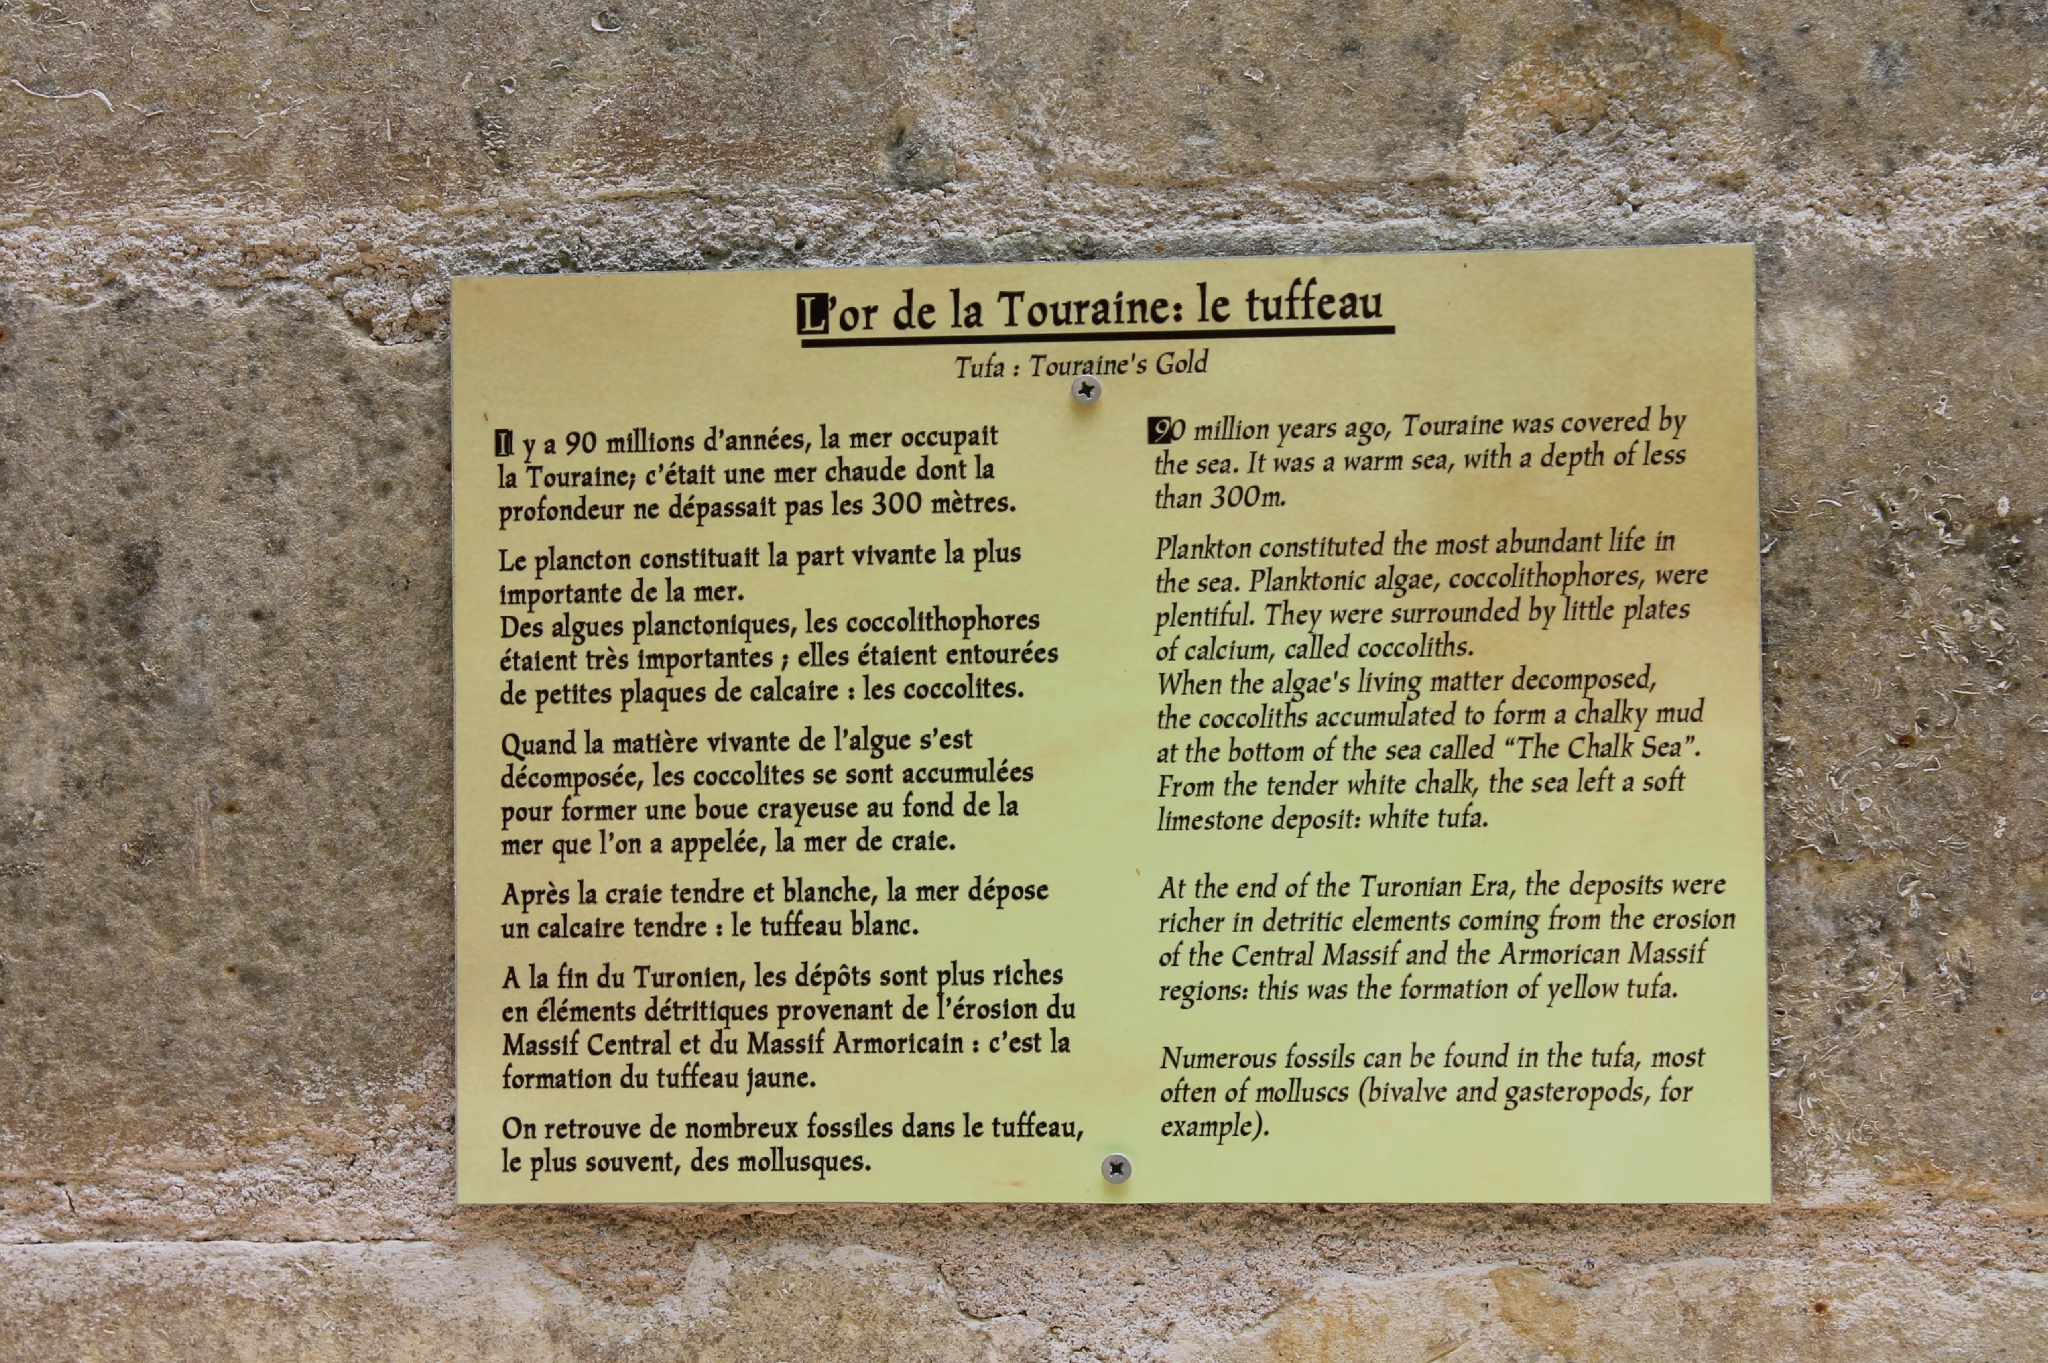 L'or de la Touraine: le tuffeau
Tufa : Touraine's Gold
Il y a 90 millions d'années, la mer occupait
la Touraine; c'était une mer chaude dont la
profondeur ne dépassait pas les 300 mètres.
Le plancton constituait la part vivante la plus
importante de la mer.
Des algues planctoniques, les coccolithophores
étaient très importantes ; elles étaient entourées
de petites plaques de calcaire : les coccolites.
Quand la matière vivante de l'algue s'est
décomposée, les coccolites se sont accumulées
pour former une boue crayeuse au fond de la
mer que l'on a appelée, la mer de craie.
Après la craie tendre et blanche, la mer dépose
un calcaire tendre : le tuffeau blanc.
A la fin du Turonien, les dépôts sont plus riches
en éléments détritiques provenant de l'érosion du
Massif Central et du Massif Armoricain : c'est la
formation du tuffeau jaune.
On retrouve de nombreux fossiles dans le tuffeau,
le plus souvent, des mollusques.
90 million years ago, Touraine was covered by
the sea. It was a warm sea, with a depth of less
than 300m.
Plankton constituted the most abundant life in
the sea. Planktonic algae, coccolithophores, were
plentiful. They were surrounded by little plates
of calcium, called coccoliths.
When the algae's living matter decomposed,
the coccoliths accumulated to form a chalky mud
at the bottom of the sea called “The Chalk Sea”.
From the tender white chalk, the sea left a soft
limestone deposit: white tufa.
At the end of the Turonian Era, the deposits were
richer in detritic elements coming from the erosion
of the Central Massif and the Armorican Massif
regions: this was the formation of yellow tufa.
Numerous fossils can be found in the tufa, most
often of molluscs (bivalve and gasteropods, for
example).